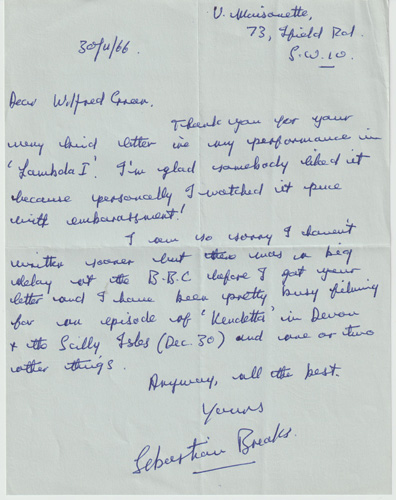 U. Maisonette,
73, Ifield Rd.
S.W.10.
30/11/66.
Dear Wilfred Green.
Thank you for your
very kind letter re my performance in
'Lambda I'. I'm glad somebody liked it
because personally I watched it puce
with embarassment!
I am so sorry I haven't
written sooner but there was a big
delay at the B.B.C before I got your
letter and I have been pretty busy filming
for an episode of 'Vendetta' in Devon
+ the Scilly Isles (Dec. 30) and one or two
other things.
Anyway, all the best.
Yours
Sebastian Breaks.